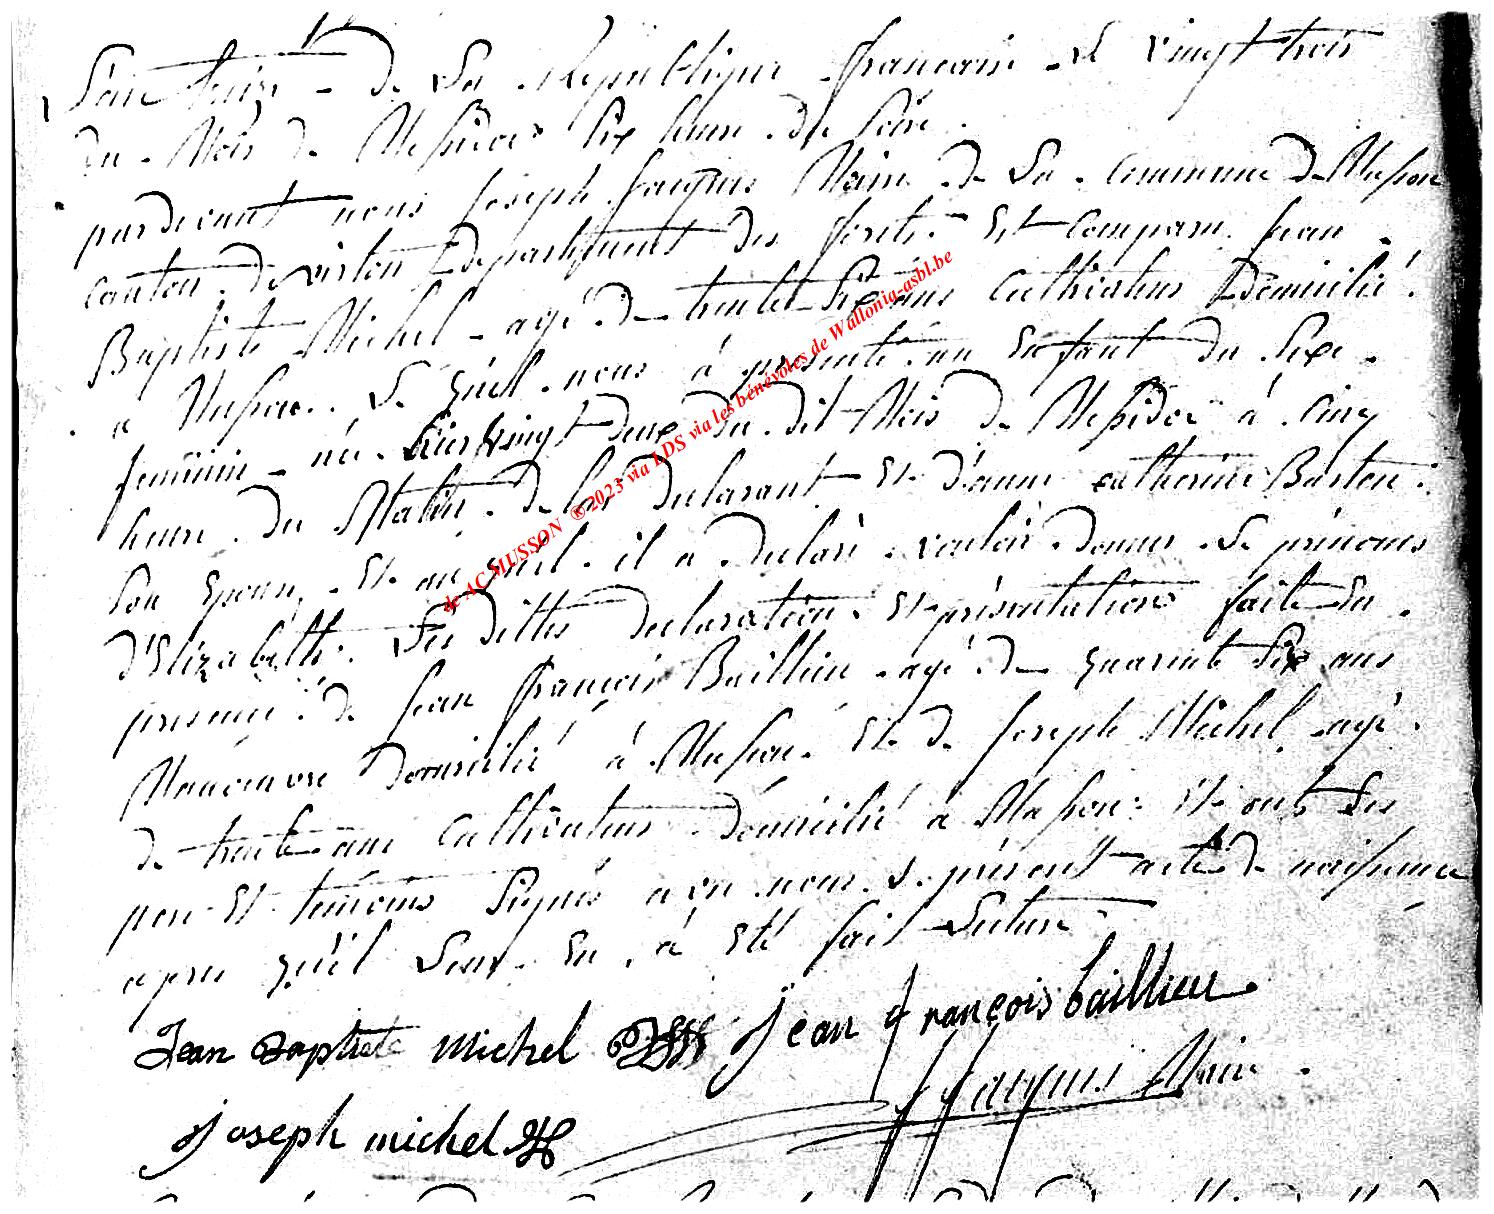 L'an treize de La Republique française Le vingt trois
du Mois de Messidor six heure du soire
pardevant nous Joseph Jacques Maire de La Commune de Musson
canton de virton departement des forêts Est comparu Jean
Baptiste Michel agé de trente six ans Cultivateur domicilié
à Musson Le quel nous à presenté un Enfant du sexe
feminin né hier vingt deux du dit Mois de Messidor à cinq
heure du Matin de lui declarant Et d'anne catherine
son Epouse Et au quel il a declaré vouloir donner Le prénoms
d'Elizabeth Les dittes declaration Et présentation faite En
presence de Jean françois Baillieu agé de quarante six ans
Manoeuvre domicilié à Musson Et de Joseph Michel agé
de trente ans Cultivateur domicilié a Musson Et ont Les
pere Et temoins signés avec nous Le présent acte de naissance
apres qu'il Leur En à Eté fait Lecture
Jean Baptiste Michel jean françois baillieu
J Jacques Maire
joseph michel
de AC MUSSON ®2023 via LDS via les bénévoles de Wallonia-asbl.be